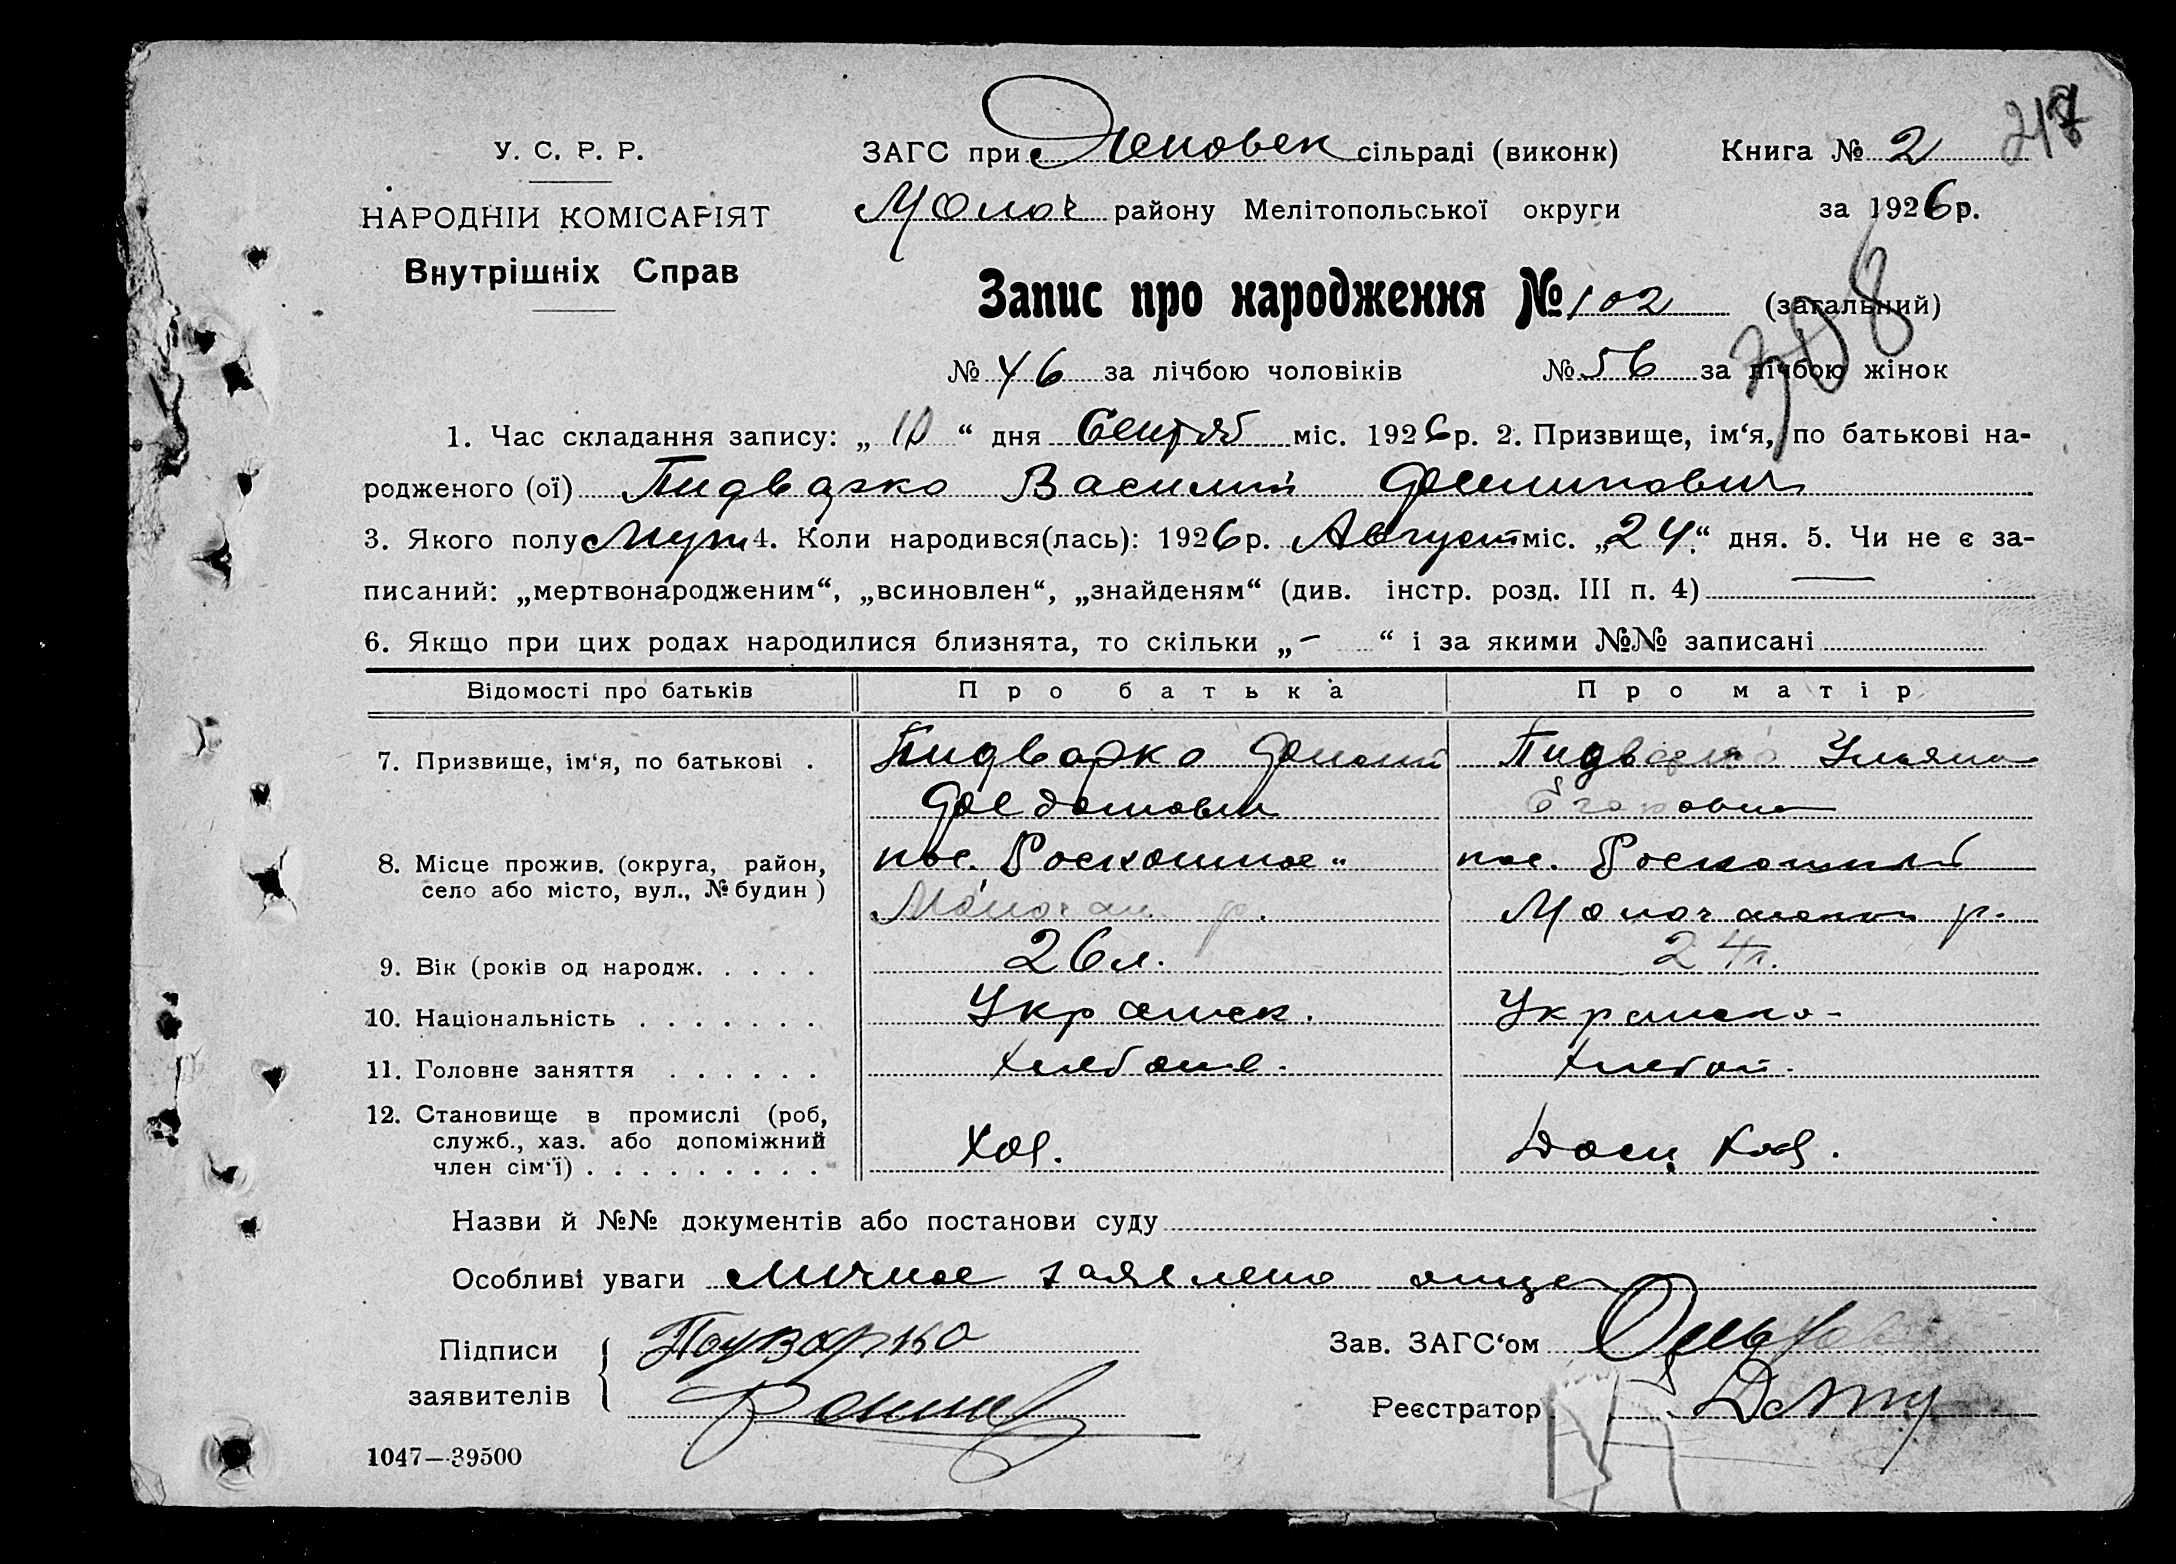 217
У. С. Р. Р.
НАРОДНІЙ КОМІСАРІЯТ
Внутрішніх Справ
ЗАГС при сільраді (виконк)
Книга № 2
Молоч району Мелітопольської округи
за 1926 р.
Запис про народження № 102 (загальний)
308
№ 46 за лічбою чоловіків № 56 за лічбою жінок
1. Час складання запису: „ 10 “ дня Сентяб міс. 1926 р. 2. Призвище, ім‘я, по батькові на-
родженого (ої) Пидварко Василий
3. Якого полу Муж 4. Коли народився(лась): 1926 р. Август міс. „24“ дня. 5. Чи не є за-
писаний: „мертвонародженим“, „всиновлен“, „знайденям“ (див. інстр. розд. III п. 4) —
6. Якщо при цих родах народилися близнята, то скільки „ – “ і за якими №№ записані
Відомості про батьків Про батька Про матір
7. Призвище, ім‘я, по батькові . Пидварко Пидварко Ульяна
Егоровна
8. Місце прожив. (округа, район, пос. Роскошное пос. Роскошный
село або місто, вул., № будин ) Молочан. р. Молочанский р.
9. Вік (років од народж. . . . . 26 л. 24 л.
10. Національність . . . . . . . Украинск. Украинск-
11. Головне заняття . . . . . . Хлебопаш. Хлебоп.
12. Становище в промислі (роб,
служб., хаз. або допоміжний Хоз. Хоз.
член сім‘ї) . . . . . . . . .
Назви й №№ документів або постанови суду
Особливі уваги личное заявление отца
Підписи Пидварко Зав. ЗАГС‘ом
заявителів Реєстратор
1047—39500